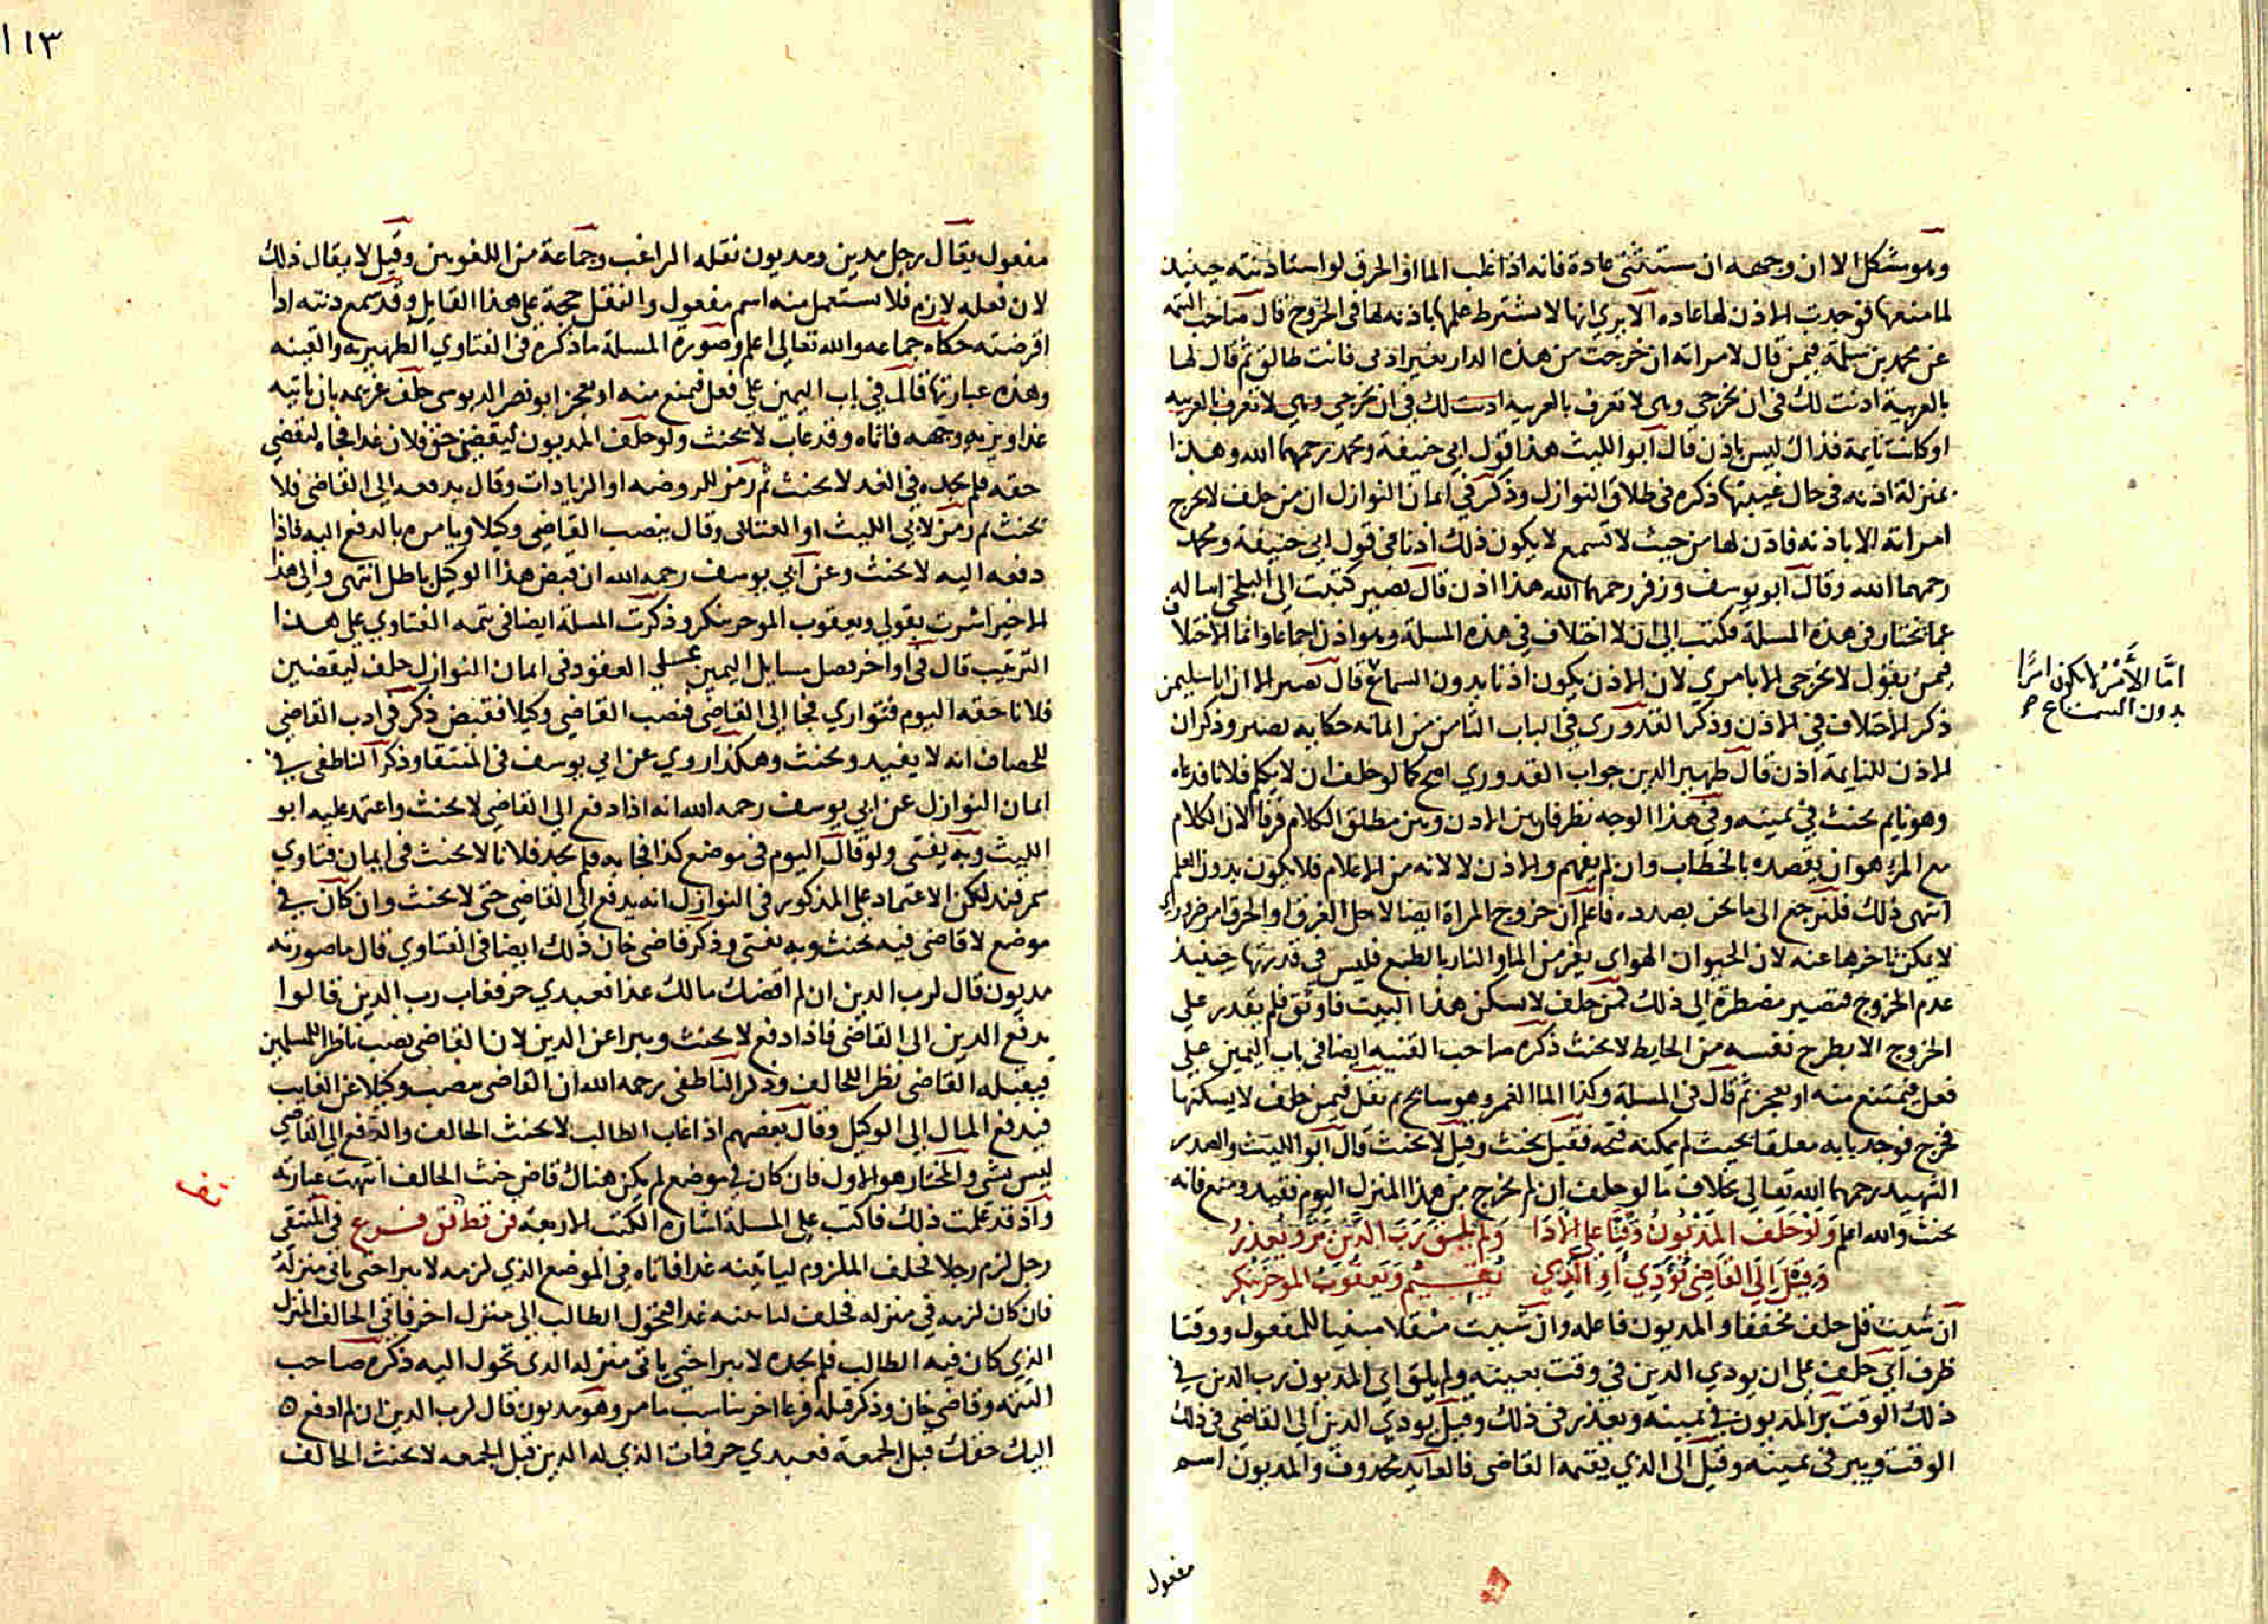 وهو مشكل الا ان وجهه ان مستثنى عادة فانه اذا غلب الما او الحرق لو استاذنته حينيذ
لما منعها فوجدت الاذن لها عاده الا يري انها لا يشترط علمها باذنه لها في الخروج قال صاحب التتمه
عن محمد بن سلمة فيمن قال لامراته ان خرجت من هذه الدار بغير اذنى فانت طالق ثم قال لها
بالعربية اذنت لك في ان تخرجي وهي لا تعرف بالعربية اذنت لك في ان تخرجي وهي لا تعرف بالعربيه
او كانت نايمة فذاك ليس باذن قال ابو الليث هذا قول ابي حنيفة ومحمد رحمهما الله وهذا
بمنزلة اذنه في حال غيبتها ذكره في طلاق النوازل وذكر في ايمان النوازل ان من حلف لا تخرج
امراته الا باذنه فاذن لها من حيث لا تسمع لا يكون ذلك اذنا في قول ابي حنيفة ومحمد
رحمهما الله وقال ابو يوسف وزفر رحمهما الله هذا اذن قال نصير كتبت الى البلخى اساله
عما تختار في هذه المسلة فكتب الى ان لا اختلاف في هذه المسلة وهو اذن اجماعا وانما الاختلاف
فيمن يقول لا تخرجي الا بامري لان الاذن يكون اذنا بدون السماع قال نصير الا ان ابا سليمن
ذكر الاختلاف في الاذن وذكر القدوري في الباب الثامن من ايمانه حكاية نصير وذكر ان
الاذن للنايمة اذن قال ظهير الدين جواب القدوري اصح كما لو حلف ان لا يكلم فلانا فدعاه
وهو نايم يحنث في يمينه وفي هذا الوجه نظر فان بين الاذن وبين مطلق الكلام فرقا لان الكلام
مع المرء هو ان يقصده بالخطاب وان لم يفهم والاذن لا لانه من الاعلام فلا يكون بدون العلم
انتهى ذلك فلنرجع الى ما نحن بصدده فاعلم ان خروج المراة ايضا لاجل الغرق او الحرق امر ضروري
لا يمكن تاخرها عنه لان الحيوان الهواي يفر من الما والنار بالطبع فليس في قدرتها حينيذ
عدم الخروج فتصير مضطرة الى ذلك كمن حلف لا يسكن هذا البيت فاوثق فلم يقدر علي
الخروج الا بطرح نفسه من الحايط لا يحنث ذكره صاحب القنيه ايضا في باب اليمين علي
فعل فيمتنع منه او يعجز ثم قال في المسلة وكذا الما الغمر وهو سابح ثم نقل فيمن حلف لا يسكنها
فخرج فوجد بابه مغلقا بحيث لم يمكنه فتحه فقيل يحنث وقيل لا يحنث قال ابو الليث والصدر
الشهيد رحمهما الله تعالى بخلاف ما لو حلف ان لم يخرج من هذا المنزل اليوم فقيد ومنع فانه
يحنث والله اعلم ولو حلف المديون وقتا على الادا ولم يلق رب الدين بر ويعذر
وقيل الى القاضي يؤدي او الذي يقيم ويعقوب الموخر ينكر
ان شيت قل حلف مخففا والمديون فاعله وان شيت مثقلا مبنيا للمفعول ووقتا
ظرف اي حلف على ان يودي الدين في وقت بعينه ولم يلق اي المديون رب الدين في
ذلك الوقت بر المديون في يمينه ويعذر في ذلك وقيل يودي الدين الي القاضي في ذلك
الوقت ويبر في يمينه وقيل الى الذي يقيمه القاضي فالعايد محذوف والمديون اسم
مفعول
اما الأمر لا يكون امرا
بدون السماع صح
١١٣
مفعول يقال رجل مدين ومديون نقله الراغب وجماعة من اللغويين وقيل لا يقال ذلك
لان فعله لازم فلا يستعمل منه اسم مفعول والنقل حجة على هذا القايل وقد سمع دنته اذا
اقرضته حكاه جماعه والله تعالى اعلم وصورة المسلة ما ذكره في الفتاوي الظهيريه والقنيه
وهذه عبارتها قال في باب اليمين على فعل فيمنع منه او يعجز ابو نصر الدبوسي حلف غريمه بان ياتيه
غدا ويريه وجهه فاتاه وقد غاب لا يحنث ولو حلف المديون ليقضين حق فلان غدا فجاه ليقضي
حقه فلم يجده في الغد لا يحنث ثم رمز للروضه او الزيادات وقال يدفعه الي القاضي فلا
يحنث ثم رمز لابي الليث او العتابى وقال ينصب القاضي وكيلا ويامره بالدفع اليه فاذا
دفعه اليه لا يحنث وعن ابي يوسف رحمه الله ان قبض هذا الوكيل باطل انتهى والى هذا
الاخير اشرت بقولي ويعقوب الموخر ينكر وذكرت المسلة ايضا في تتمه الفتاوي علي هذا
الترتيب قال في اواخر فصل مسايل اليمين علي العقود في ايمان النوازل حلف ليقضين
فلانا حقه اليوم فتواري فجا الى القاضي فنصب القاضي وكيلا فقبض ذكر في ادب القاضي
للخصاف انه لا يفيد ويحنث وهكذا روي عن ابي يوسف في المنتقا وذكر الناطفى في
ايمان النوازل عن ابي يوسف رحمه الله انه اذا دفع الي القاضي لا يحنث واعتمد عليه ابو
الليث وبه يفتى ولو قال اليوم في موضع كذا فجا به فلم يجد فلانا لا يحنث في ايمان فتاوي
سمرقند لكن الاعتماد على المذكور في النوازل انه يدفع الى القاضي حتى لا يحنث وان كان في
موضع لا قاضى فيه يحنث وبه يفتى وذكر قاضى خان ذلك ايضا في الفتاوي قال ما صورته
مديون قال لرب الدين ان لم اقضك مالك غدا فعبدي حر فغاب رب الدين قالوا
يدفع الدين الى القاضي فاذا دفع لا يحنث ويبرا عن الدين لان القاضي نصب ناظرا للمسلمين
فيقبله القاضى نظرا للحالف وذكر الناطفى رحمه الله ان القاضى ينصب وكيلا عن الغايب
فيدفع المال الى الوكيل وقال بعضهم اذا غاب الطالب لا يحنث الحالف والدفع الى القاضي
ليس بشي والمختار هو الاول فان كان في موضع لم يكن هناك قاضي حنث الحالف انتهت عبارته
واذ قد علمت ذلك فاكتب على المسلة اشارة الكتب الاربعة فن قط تق فرع في المنتقى
رجل لزم رجلا فحلف الملزوم لياتينه غدا فاتاه في الموضع الذي لزمه لا يبرا حتى ياتى منزله
فان كان لزمه في منزله فحلف لياتينه غدا فتحول الطالب الى منزل اخر فاتى الحالف المنزل
الذي كان فيه الطالب فلم يجده لا يبرا حتى ياتى منزله الذي تحول اليه ذكره صاحب
التتمه وقاضي خان وذكر قبله فرعا اخر يناسب ما مر وهو مديون قال لرب الدين ان لم ادفع
اليك حقك قبل الجمعة فعبدي حر فمات الذي له الدين قبل الجمعه لا يحنث الحالف